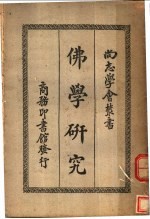 尚志學會叢書
佛學研究
商務印書館發行